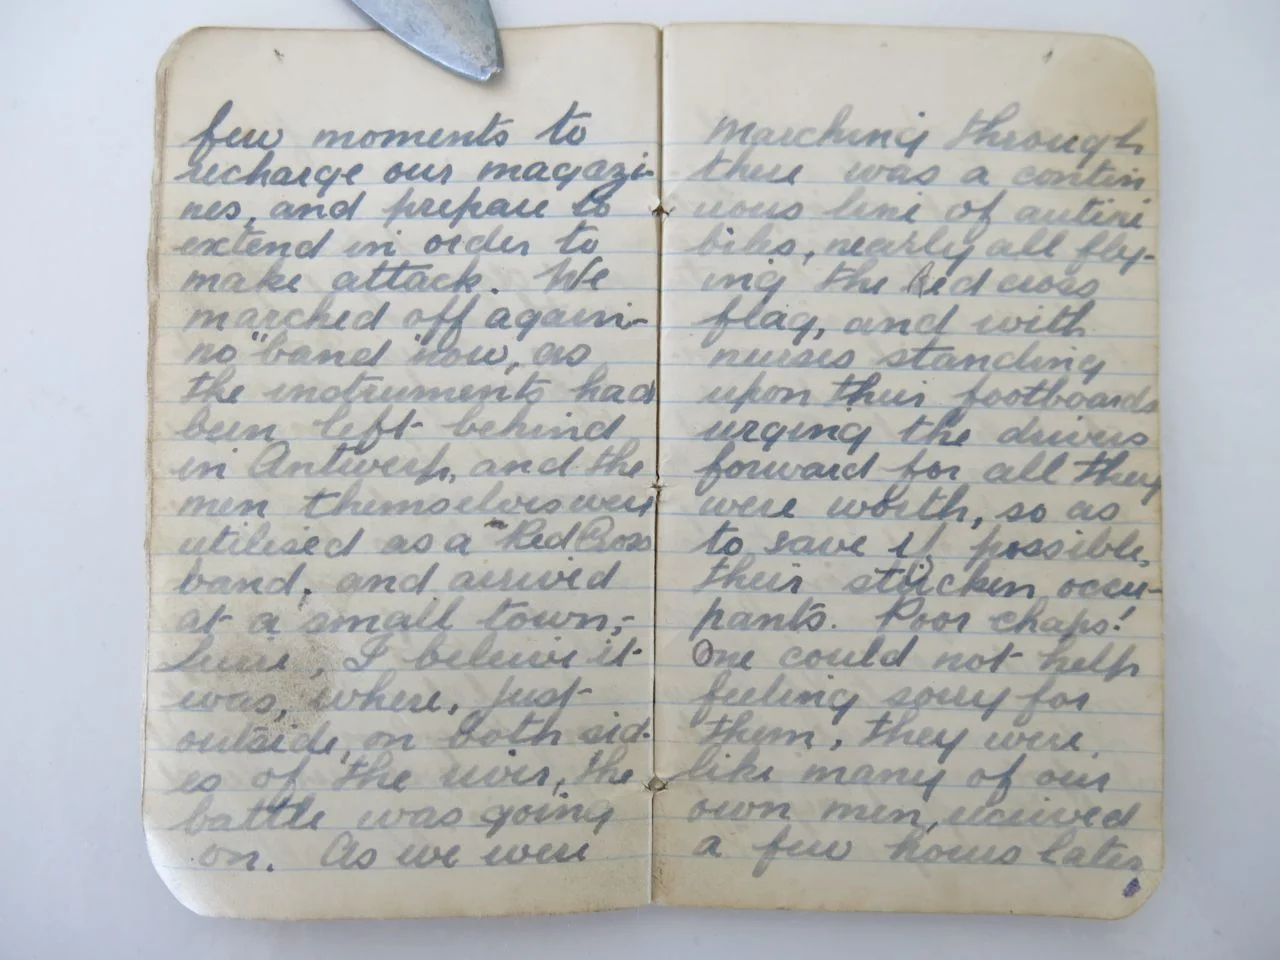 few moments to
recharge our magazi-
nes, and prepare to
extend in order to
make attack. We
marched off again-
no "band" now, as
the instruments had
been left behind
in Antwerp, and the
men themselves were
utilised as a Red Cross
band, and arrived
at a small town,-
I beleive it
was, where, just
outside, on both sid-
es of the river, the
battle was going
on. As we were
marching through
there was a contin
uous line of
nearly all fly-
ing the Red cross
flag, and with
nurses standing
upon their footboards
urging the drivers
forward for all they
were worth, so as
to save if possible,
their stricken occu-
pants. Poor chaps!
One could not help
feeling sorry for
them, they were
like many of our
own men, received
a few hours later